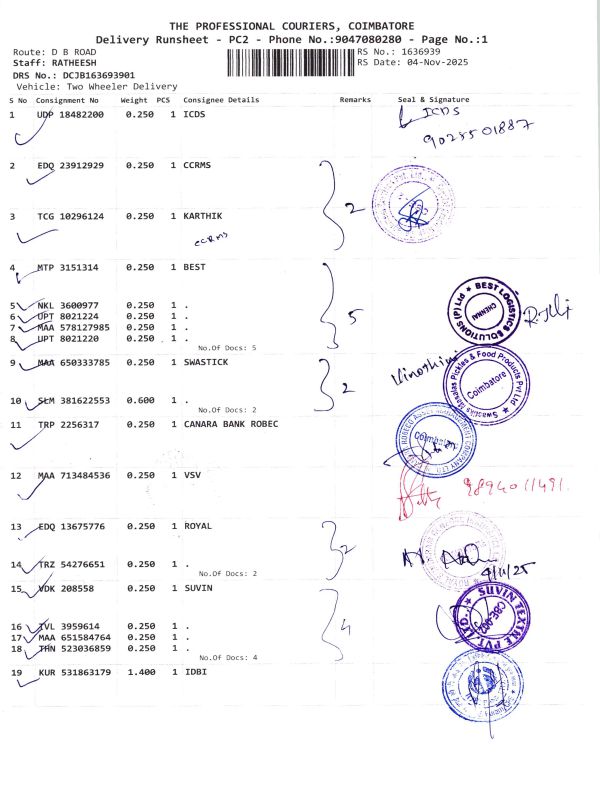 THE PROFESSIONAL COURIERS, COIMBATORE
Delivery Runsheet - PC2 - Phone No.:9047080280 - Page No.:1
Route: D B ROAD
RS No.: 1636939
Staff: RATHEESH
RS Date: 04-Nov-2025
DRS No.: DCJB163693901
Vehicle: Two Wheeler Delivery
S No Consignment No Weight PCS Consignee Details Remarks Seal & Signature
1 UDP 18482200 0.250 1 ICDS ICDS
9028501887
2 EDQ 23912929 0.250 1 CCRMS
2
3 TCG 10296124 0.250 1 KARTHIK
CCRMS
4 MTP 3151314 0.250 1 BEST
BEST LOGISTICS SOLUTIONS (P) Ltd CHENNAI
5 NKL 3600977 0.250 1 .
6 UPT 8021224 0.250 1 . 5
7 MAA 578127985 0.250 1 .
8 UPT 8021220 0.250 1 .
No.Of Docs: 5
9 MAA 650333785 0.250 1 SWASTICK 2 Vinothini
Pickles & Food Products Pvt Ltd Coimbatore
10 SLM 381622553 0.600 1 .
No.Of Docs: 2
11 TRP 2256317 0.250 1 CANARA BANK ROBEC
ROBECO ASSET MANAGEMENT COMPANY LTD Coimbatore
12 MAA 713484536 0.250 1 VSV 9894011491.
13 EDQ 13675776 0.250 1 ROYAL
2
14 TRZ 54276651 0.250 1 . 4/11/25
No.Of Docs: 2
15 VDK 208558 0.250 1 SUVIN
SUVIN TEXTILE PVT. LTD.
16 TVL 3959614 0.250 1 . 4
17 MAA 651584764 0.250 1 .
18 THN 523036859 0.250 1 .
No.Of Docs: 4
19 KUR 531863179 1.400 1 IDBI